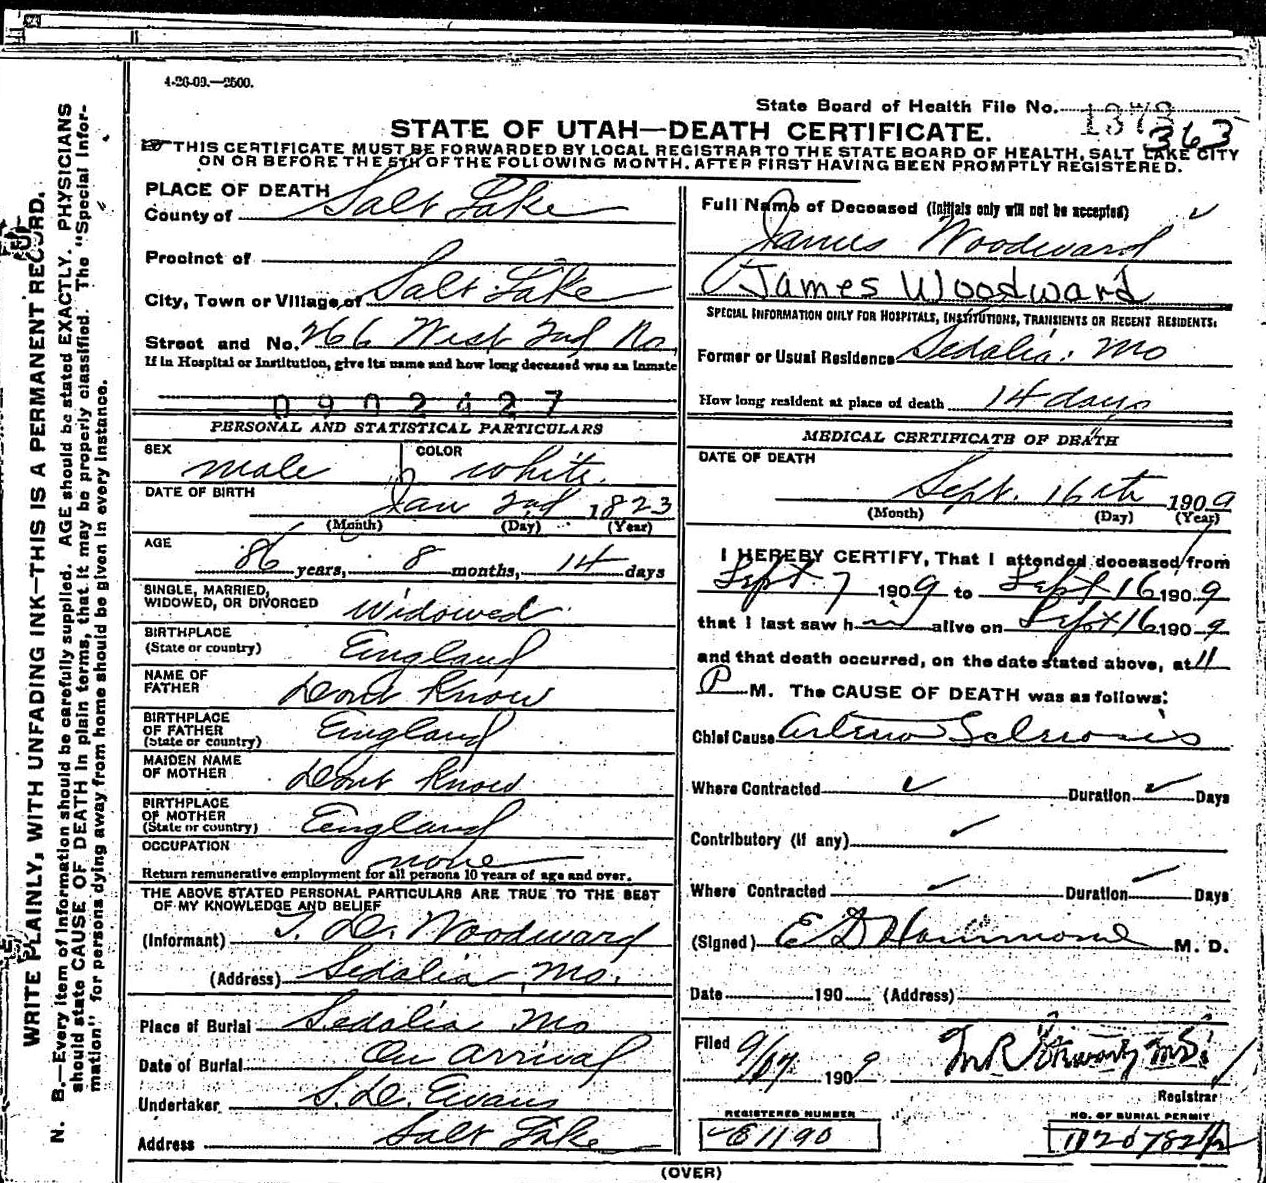 4-26-09.—2500.
State Board of Health File No. 1373
363
STATE OF UTAH—DEATH CERTIFICATE.
THIS CERTIFICATE MUST BE FORWARDED BY LOCAL REGISTRAR TO THE STATE BOARD OF HEALTH, SALT LAKE CITY
ON OR BEFORE THE 5TH OF THE FOLLOWING MONTH. AFTER FIRST HAVING BEEN PROMPTLY REGISTERED.
WRITE PLAINLY, WITH UNFADING INK—THIS IS A PERMANENT RECORD.
N. B.—Every item of Information should be carefully supplied. AGE should be stated EXACTLY. PHYSICIANS
should state CAUSE OF DEATH in plain terms, that it may be properly classified. The "Special Infor-
mation" for persons dying away from home should be given in every instance.
PLACE OF DEATH
County of Salt Lake
Precinct of
City, Town or Village of Salt Lake
Street and No. 266 West 2nd No.
If in Hospital or Institution, give its name and how long deceased was an inmate
0902427
PERSONAL AND STATISTICAL PARTICULARS
SEX male COLOR white.
DATE OF BIRTH Jan 2nd 1823
(Month) (Day) (Year)
AGE 86 years, 8 months, 14 days
SINGLE, MARRIED,
WIDOWED, OR DIVORCED Widowed
BIRTHPLACE
(State or country) England
NAME OF
FATHER Dont Know
BIRTHPLACE
OF FATHER
(State or country) England
MAIDEN NAME
OF MOTHER Dont Know
BIRTHPLACE
OF MOTHER
(State or country) England
OCCUPATION
none
Return remunerative employment for all persons 10 years of age and over.
THE ABOVE STATED PERSONAL PARTICULARS ARE TRUE TO THE BEST
OF MY KNOWLEDGE AND BELIEF
(Informant) Woodward
(Address) Sedalia, Mo.
Place of Burial Sedalia Mo
Date of Burial On arrival
Undertaker S. D. Evans
Address Salt Lake
Full Name of Deceased (Initials only will not be accepted)
James Woodward
James Woodward
SPECIAL INFORMATION ONLY FOR HOSPITALS, INSTITUTIONS, TRANSIENTS OR RECENT RESIDENTS:
Former or Usual Residence Sedalia. Mo
How long resident at place of death 14 days
MEDICAL CERTIFICATE OF DEATH
DATE OF DEATH
Sept. 16th 1909
(Month) (Day) (Year)
I HEREBY CERTIFY, That I attended deceased from
Sept 7 1909 to Sept 16 1909
that I last saw him alive on Sept 16 1909
and that death occurred, on the date stated above, at 11
P M. The CAUSE OF DEATH was as follows:
Chief Cause Arterio Sclerosis
Where Contracted Duration Days
Contributory (if any)
Where Contracted Duration Days
(Signed) E D Hammond M. D.
Date 190 (Address)
Filed 9/17 1909
Registrar
REGISTERED NUMBER
E1190
NO. OF BURIAL PERMIT
(OVER)